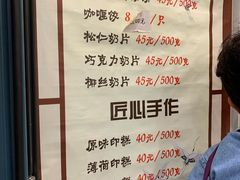 咖喱饺 8元/只
松仁奶片 45元/500克
巧克力奶片 45元/500克
椰丝奶片 45元/500克
匠心手作
原味印糕 40元/500克
薄荷印糕 40元/500克
40元/500克